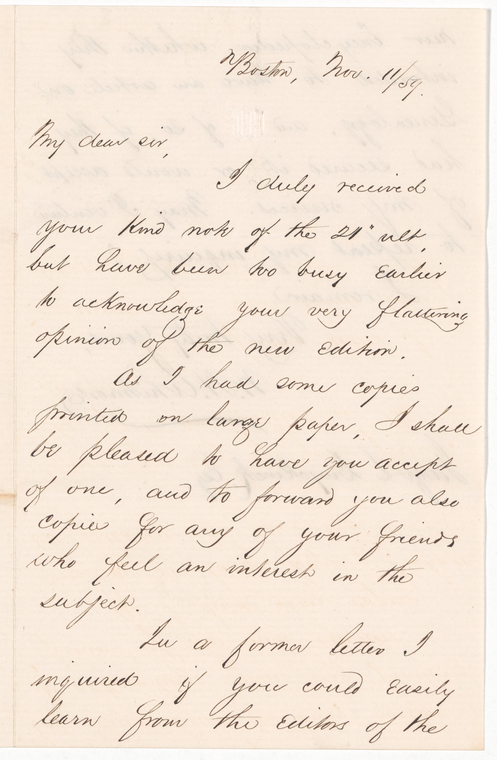 Boston, Nov. 11/59.
My dear sir,
I duly received
your kind note of the 21st ult,
but have been too busy earlier
to acknowledge your very flattering
opinion of the new edition.
As I had some copies
printed on large paper, I shall
be pleased to have you accept
of one, and to forward you also
copies for any of your friends
who feel an interest in the
subject.
In a former letter I
inquired if you could easily
learn from the Editors of the